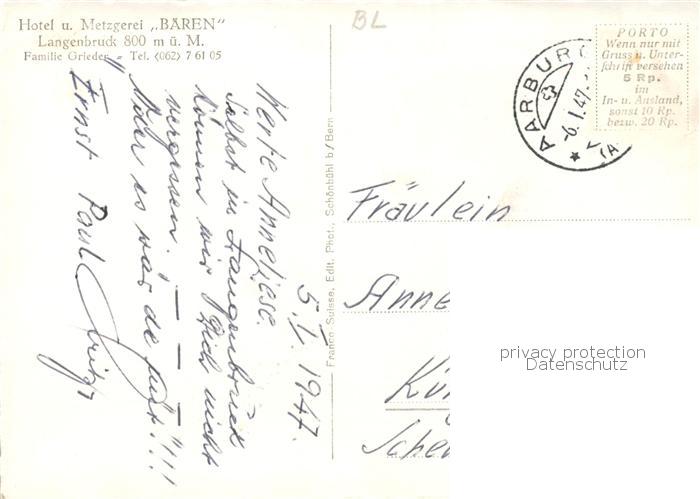 Hotel u. Metzgerei „BÄREN"
Langenbruck 800 m ü. M.
Familie Grieder - Tel. (062) 7 61 05
BL
AARBURG
-6.I.47.
(A
PORTO
Wenn nur mit
Gruss u. Unter-
schrift versehen
5 Rp.
im
In- u. Ausland,
sonst 10 Rp.
bezw. 20 Rp.
5. I. 1947.
Werte Anneliese.
Selbst in Langenbruck
können wir Dich nicht
vergessen. — — —
Oder es wär de guet"!!!
Ernst Paul
Franco-Suisse, Edit. Phot., Schönbühl b/Bern
Fräulein
Anne
privacy protection
Datenschutz